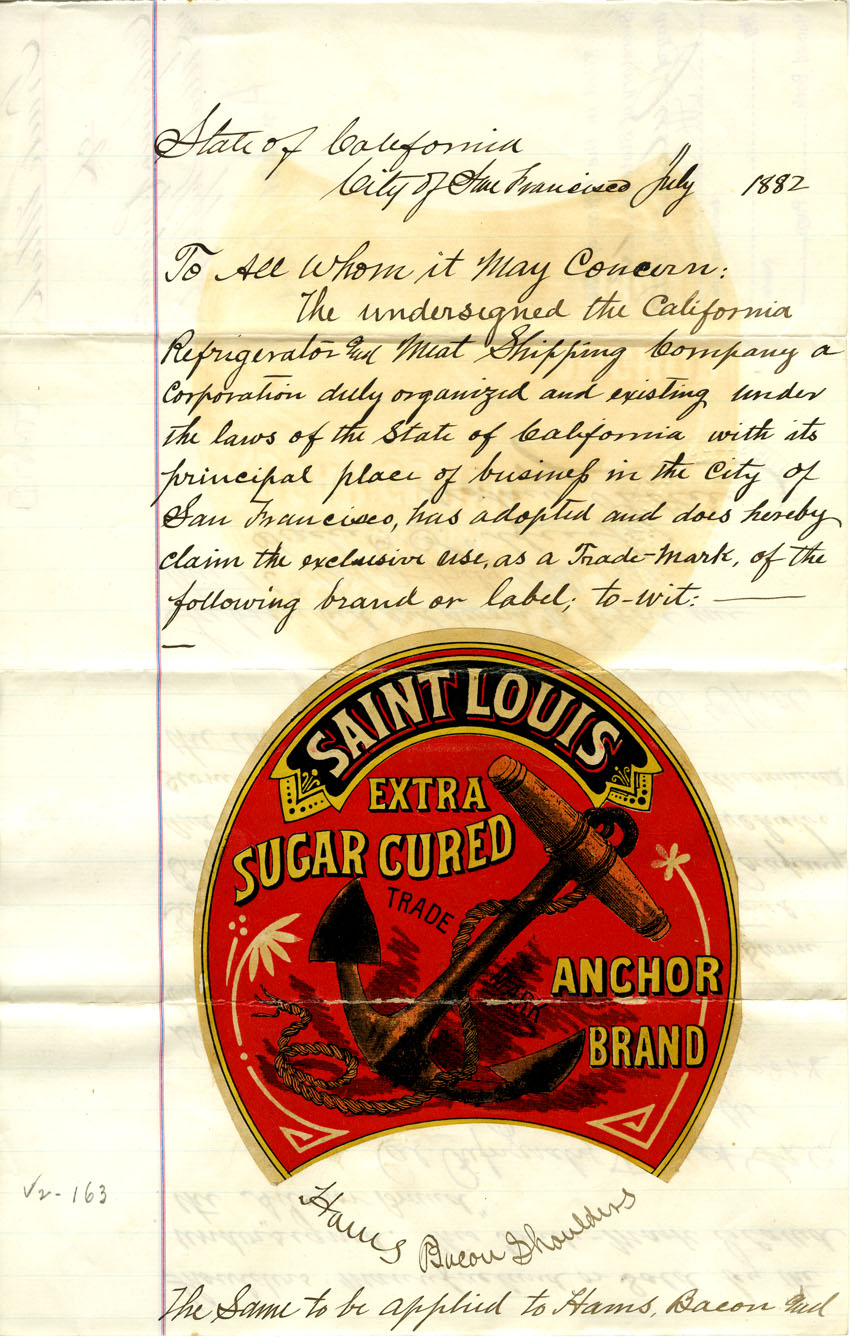 State of California
City of San Francisco July 1882
To All Whom it May Concern:
The undersigned the California
Refrigerator and Meat Shipping Company a
Corporation duly organized and existing under
the laws of the State of California with its
principal place of business in the City of
San Francisco, has adopted and does hereby
claim the exclusive use, as a Trade-Mark, of the
following brand or label; to-wit: —
—
SAINT LOUIS
EXTRA
SUGAR CURED
TRADE
MARK
ANCHOR
BRAND
V2-163
Hams Bacon Shoulders
The Same to be applied to Hams, Bacon and